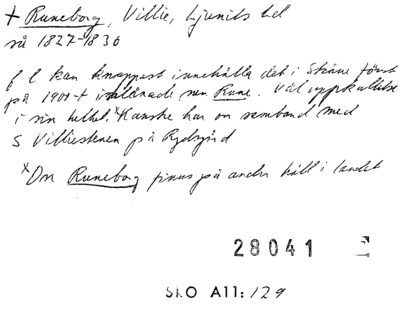 + Runeborg, Villie, Ljunits hd
så 1827-1836
f l kan knappast innehålla det i Skåne först
på 1900-t inlånade mn Rune. Väl uppkallelse
i sin helhet.ˣ Kanske har on samband med
S Villiestenen på Rydsgård
ˣOn Runeborg finns på andra håll i landet
28041
SkO A11:129